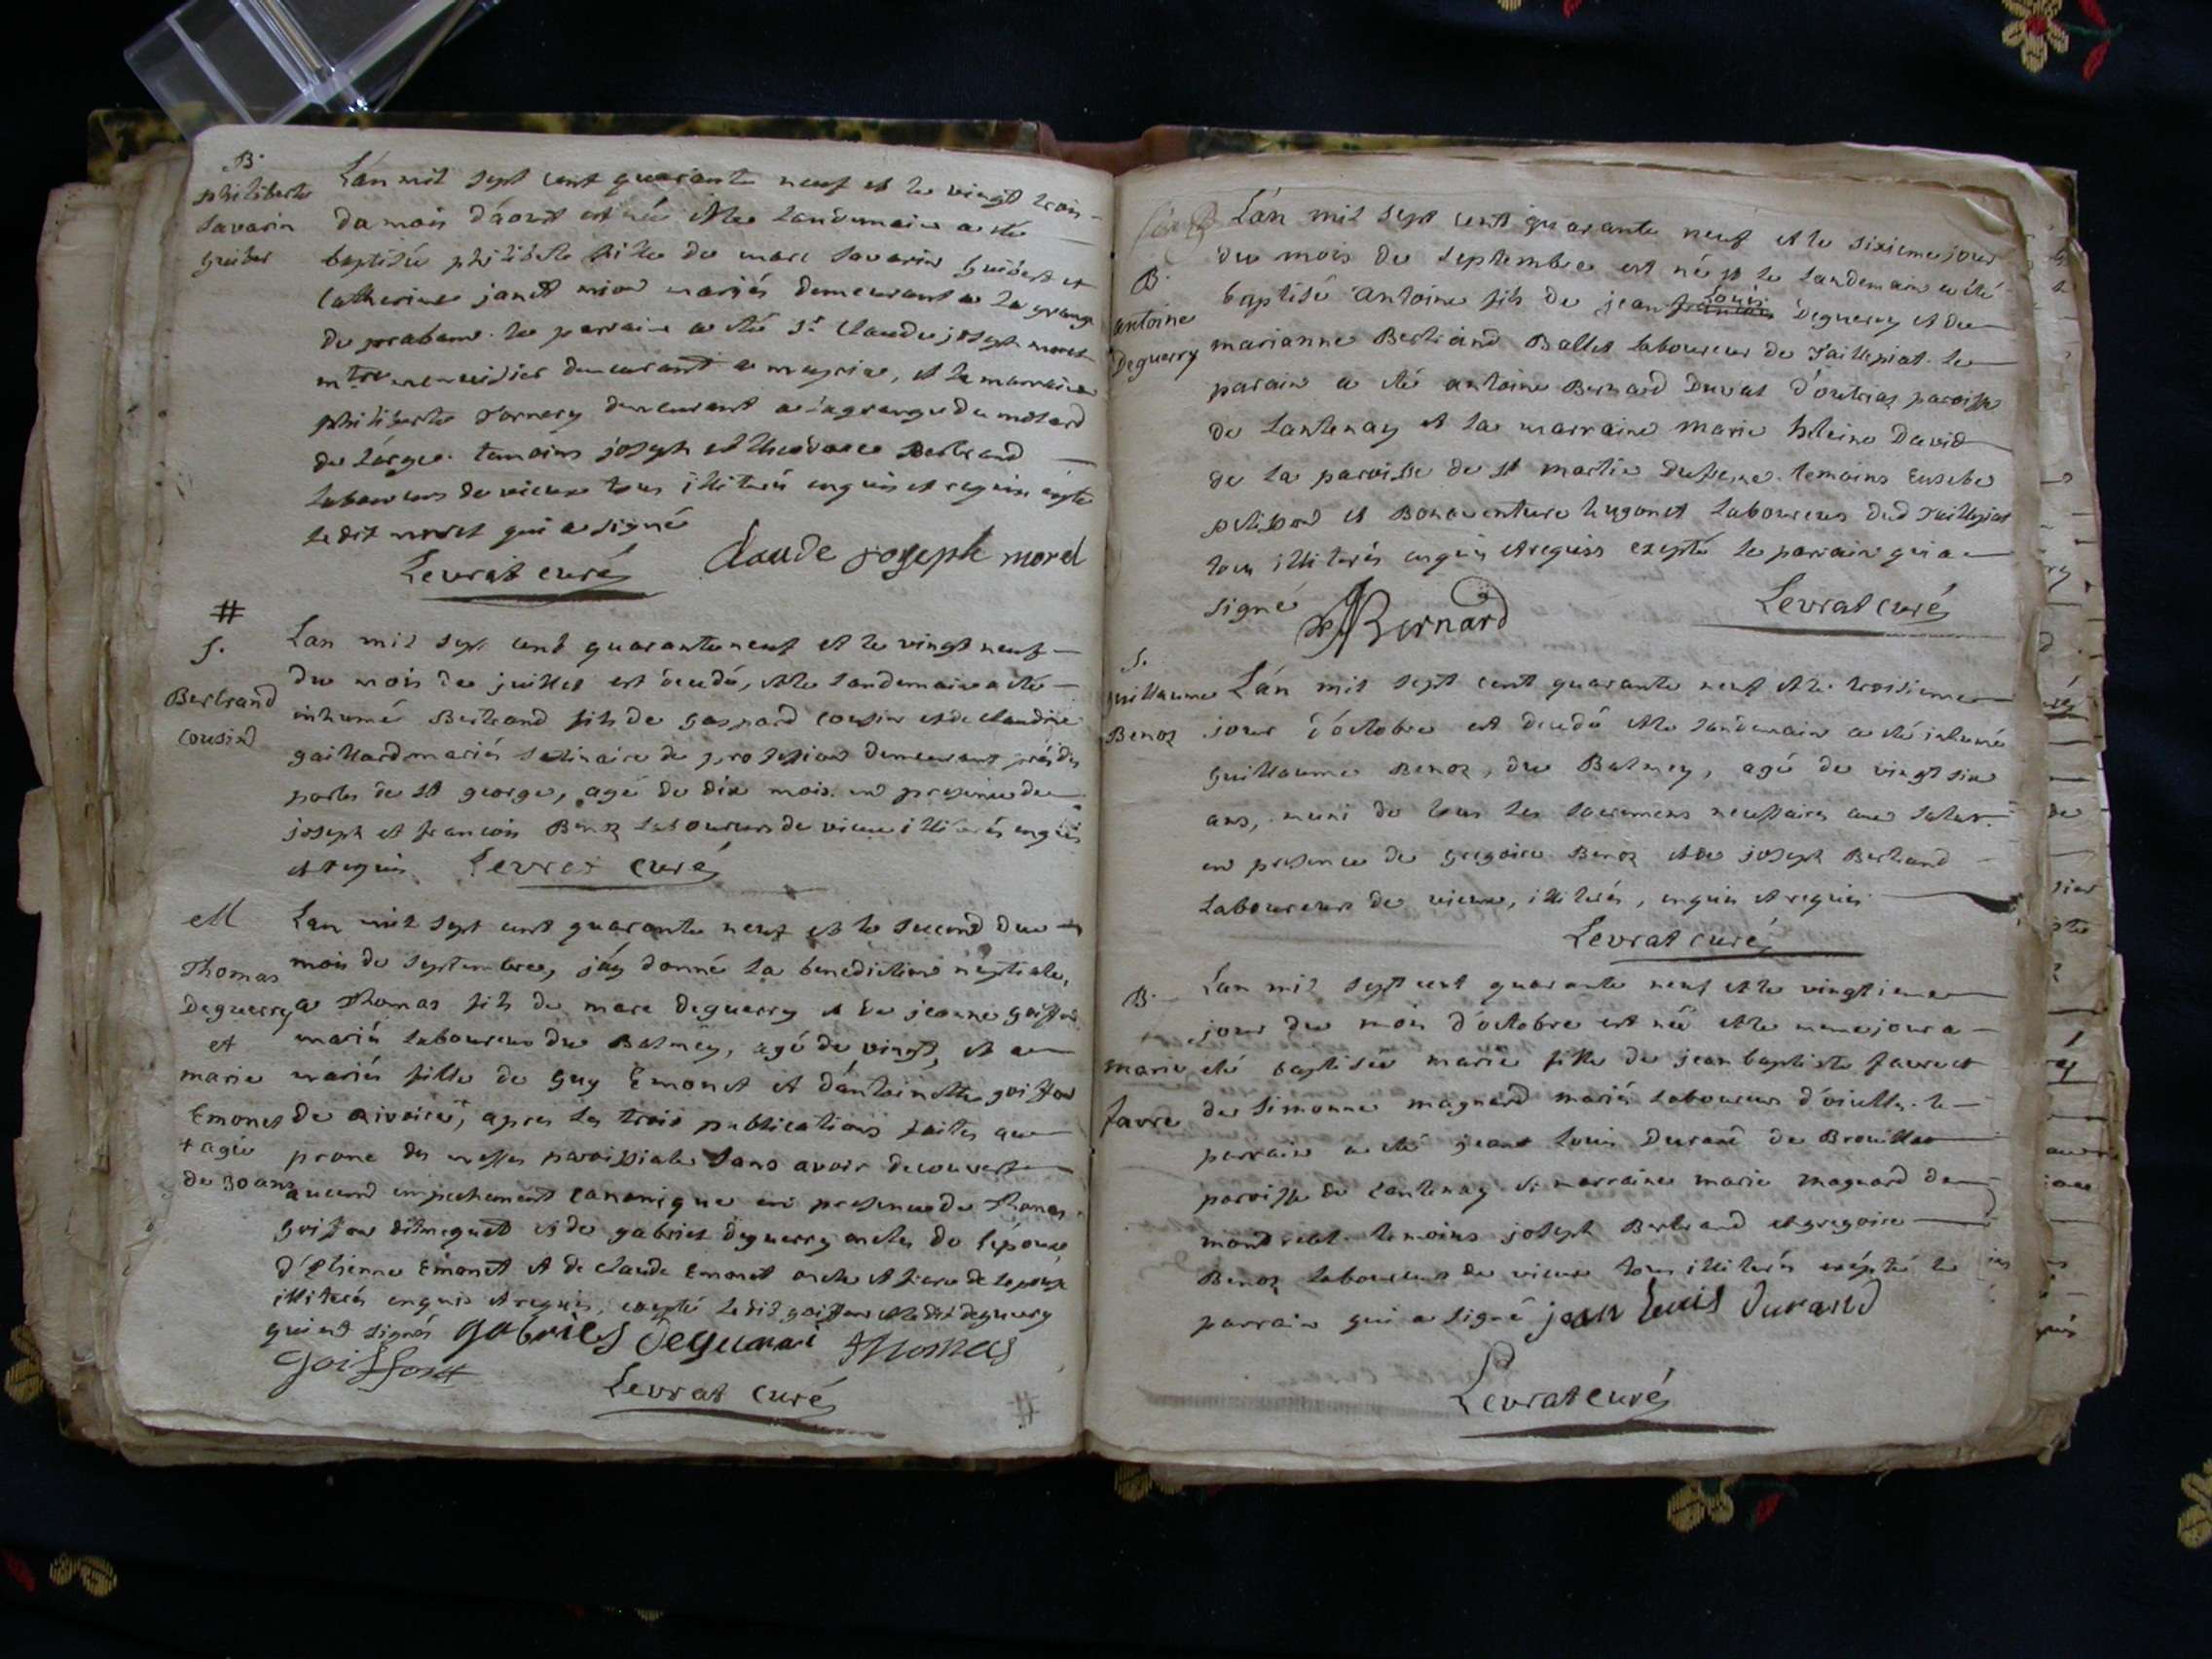 B.
philiberte
Savarin
Guibert
L'an mil sept cent quarante neuf et le vingt trois
du mois d'aoust est née et le landemain a été
baptisée philiberte fille de marc Savarin Guibert et
Catherine janet mion mariés demeurant a la grange
de prabam. le parrain a été Sr Claude joseph morel
mtre menuisier demeurant a, et la marraine
philiberte demeurant a la grange du molard
de. temoins joseph et Bertrand
laboureurs de vieux tous illiterés enquis et requis
le dit morel qui a signé
Levrat curé Claude joseph morel
#
S.
Bertrand
Cousin
Lan mil sept cent quarante neuf et le vingt neuf
du mois de juillet est decedé, et le landemain a été
inhumé Bertrand fils de gaspard cousin et de claudine
gaillard mariés de profession demeurant près des
portes de st george, agé de dix mois. en presence de
joseph et francois Benoz laboureurs de vieux illiterés enquis
et requis Levrat curé
M
Thomas
Deguerry
et
marie
Emonet
+ agée
de 30 ans
Lan mil sept cent quarante neuf et le second du
mois de septembre, j'ay donné la benediction nuptiale,
a Thomas fils de marc deguerry et de jeanne goiffon
mariés laboureur du Balmey, agé de vingt, et a
mariée fille de Guy Emonet et d'antoinette goiffon
de rivoire+, apres les trois publications faites au
prone des messes paroissiales sans avoir decouvert
aucund empechement canonique en presence de Thomas
goiffon dit et de gabriel deguerry oncles de l'époux
d'Etienne Emonet et de claude Emonet oncle et frere de lepouse
illiterés enquis et requis, excepté le dit goiffon et le dit deguerry
qui ont signés gabriel deguerri Thomas
goiffon
Levrat curé
#
L'an mil sept cent quarante neuf et le sixieme jour
du mois de septembre est né et le landemain a été
B.
antoine
Deguerry
baptisé antoine fils de jean Louis Deguerry et de
marianne Bertrand Ballet laboureur de Taillepiat. le
parain a été antoine Bernard Duvat d'outriaz paroisse
de Lantenay et la marraine marie heleine David
de la paroisse de st martin Dufrene. temoins Eusebe
et Bonaventure hugonet laboureurs dud Taillepiat
tous illiterés enquis et requis excepté le parrain qui a
signé Bernard Levrat curé
S.
guillaume
Benoz
L'án mil sept cent quarante neuf et le troisieme
jour d'octobre est decedé et le landemain a été inhumé
Guillaume Benoz, du Balmey, agé de vingt six
ans, muni de tous les sacremens necessaires au salut.
en presence de gregoire Benoz et de joseph Bertrand
Laboureurs de vieux, illiterés, enquis et requis
Levrat curé
B.
marie
favre
Lan mil sept cent quarante neuf et le vingtieme
jour du mois d'octobre est née et le meme jour a
eté baptisée marie fille de jean baptiste favre et
de simonne magnard mariés laboureur d'. le
parrain a été jean louis Durand de Brouillat
paroisse de Lantenay et marraine marie magnard de
. temoins joseph Bertrand et gregoire
Benoz laboureurs de vieux tous illiterés exépté le
parrain qui a signé jean louis Durand
Levrat curé